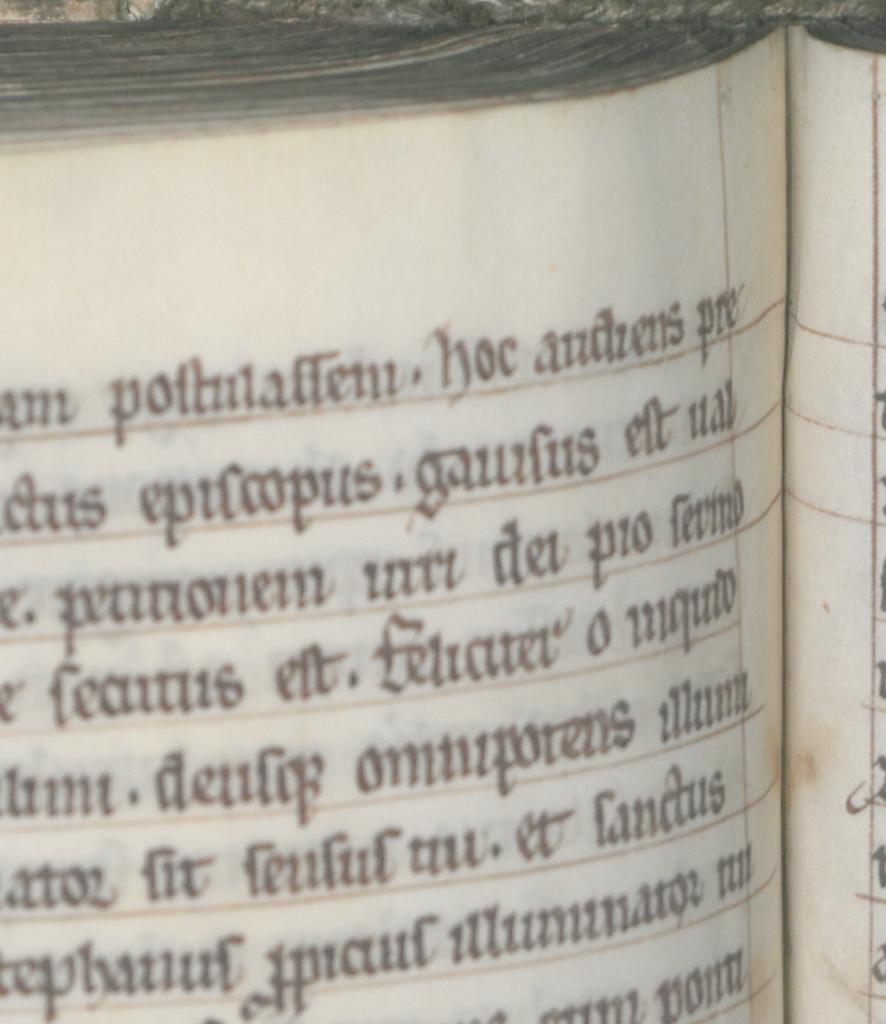 am postulassem. hoc audiens pre
ctus episcopus. gauisus est ual
e. petitionem uiri dei pro
e secutus est. feliciter o inquid
deusqꝫ omnipotens illum
ator sit sensus tui. et sanctus
tephanus ꝓpicius illuminator tu
cum ponti